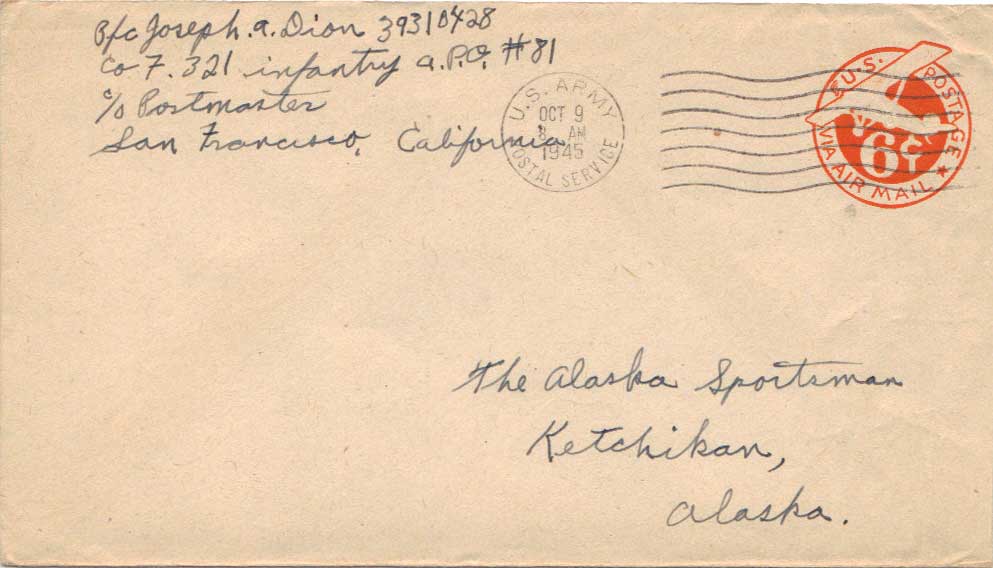 Pfc Joseph. A. Dion 39310428
Co F. 321 infantry A.P.O. #81
c/o Postmaster
San Francisco, California
U.S. ARMY
OCT 9
8 AM
1945
POSTAL SERVICE
U.S. POSTAGE
6¢
VIA AIR MAIL
The Alaska Sportsman
Ketchikan,
Alaska.